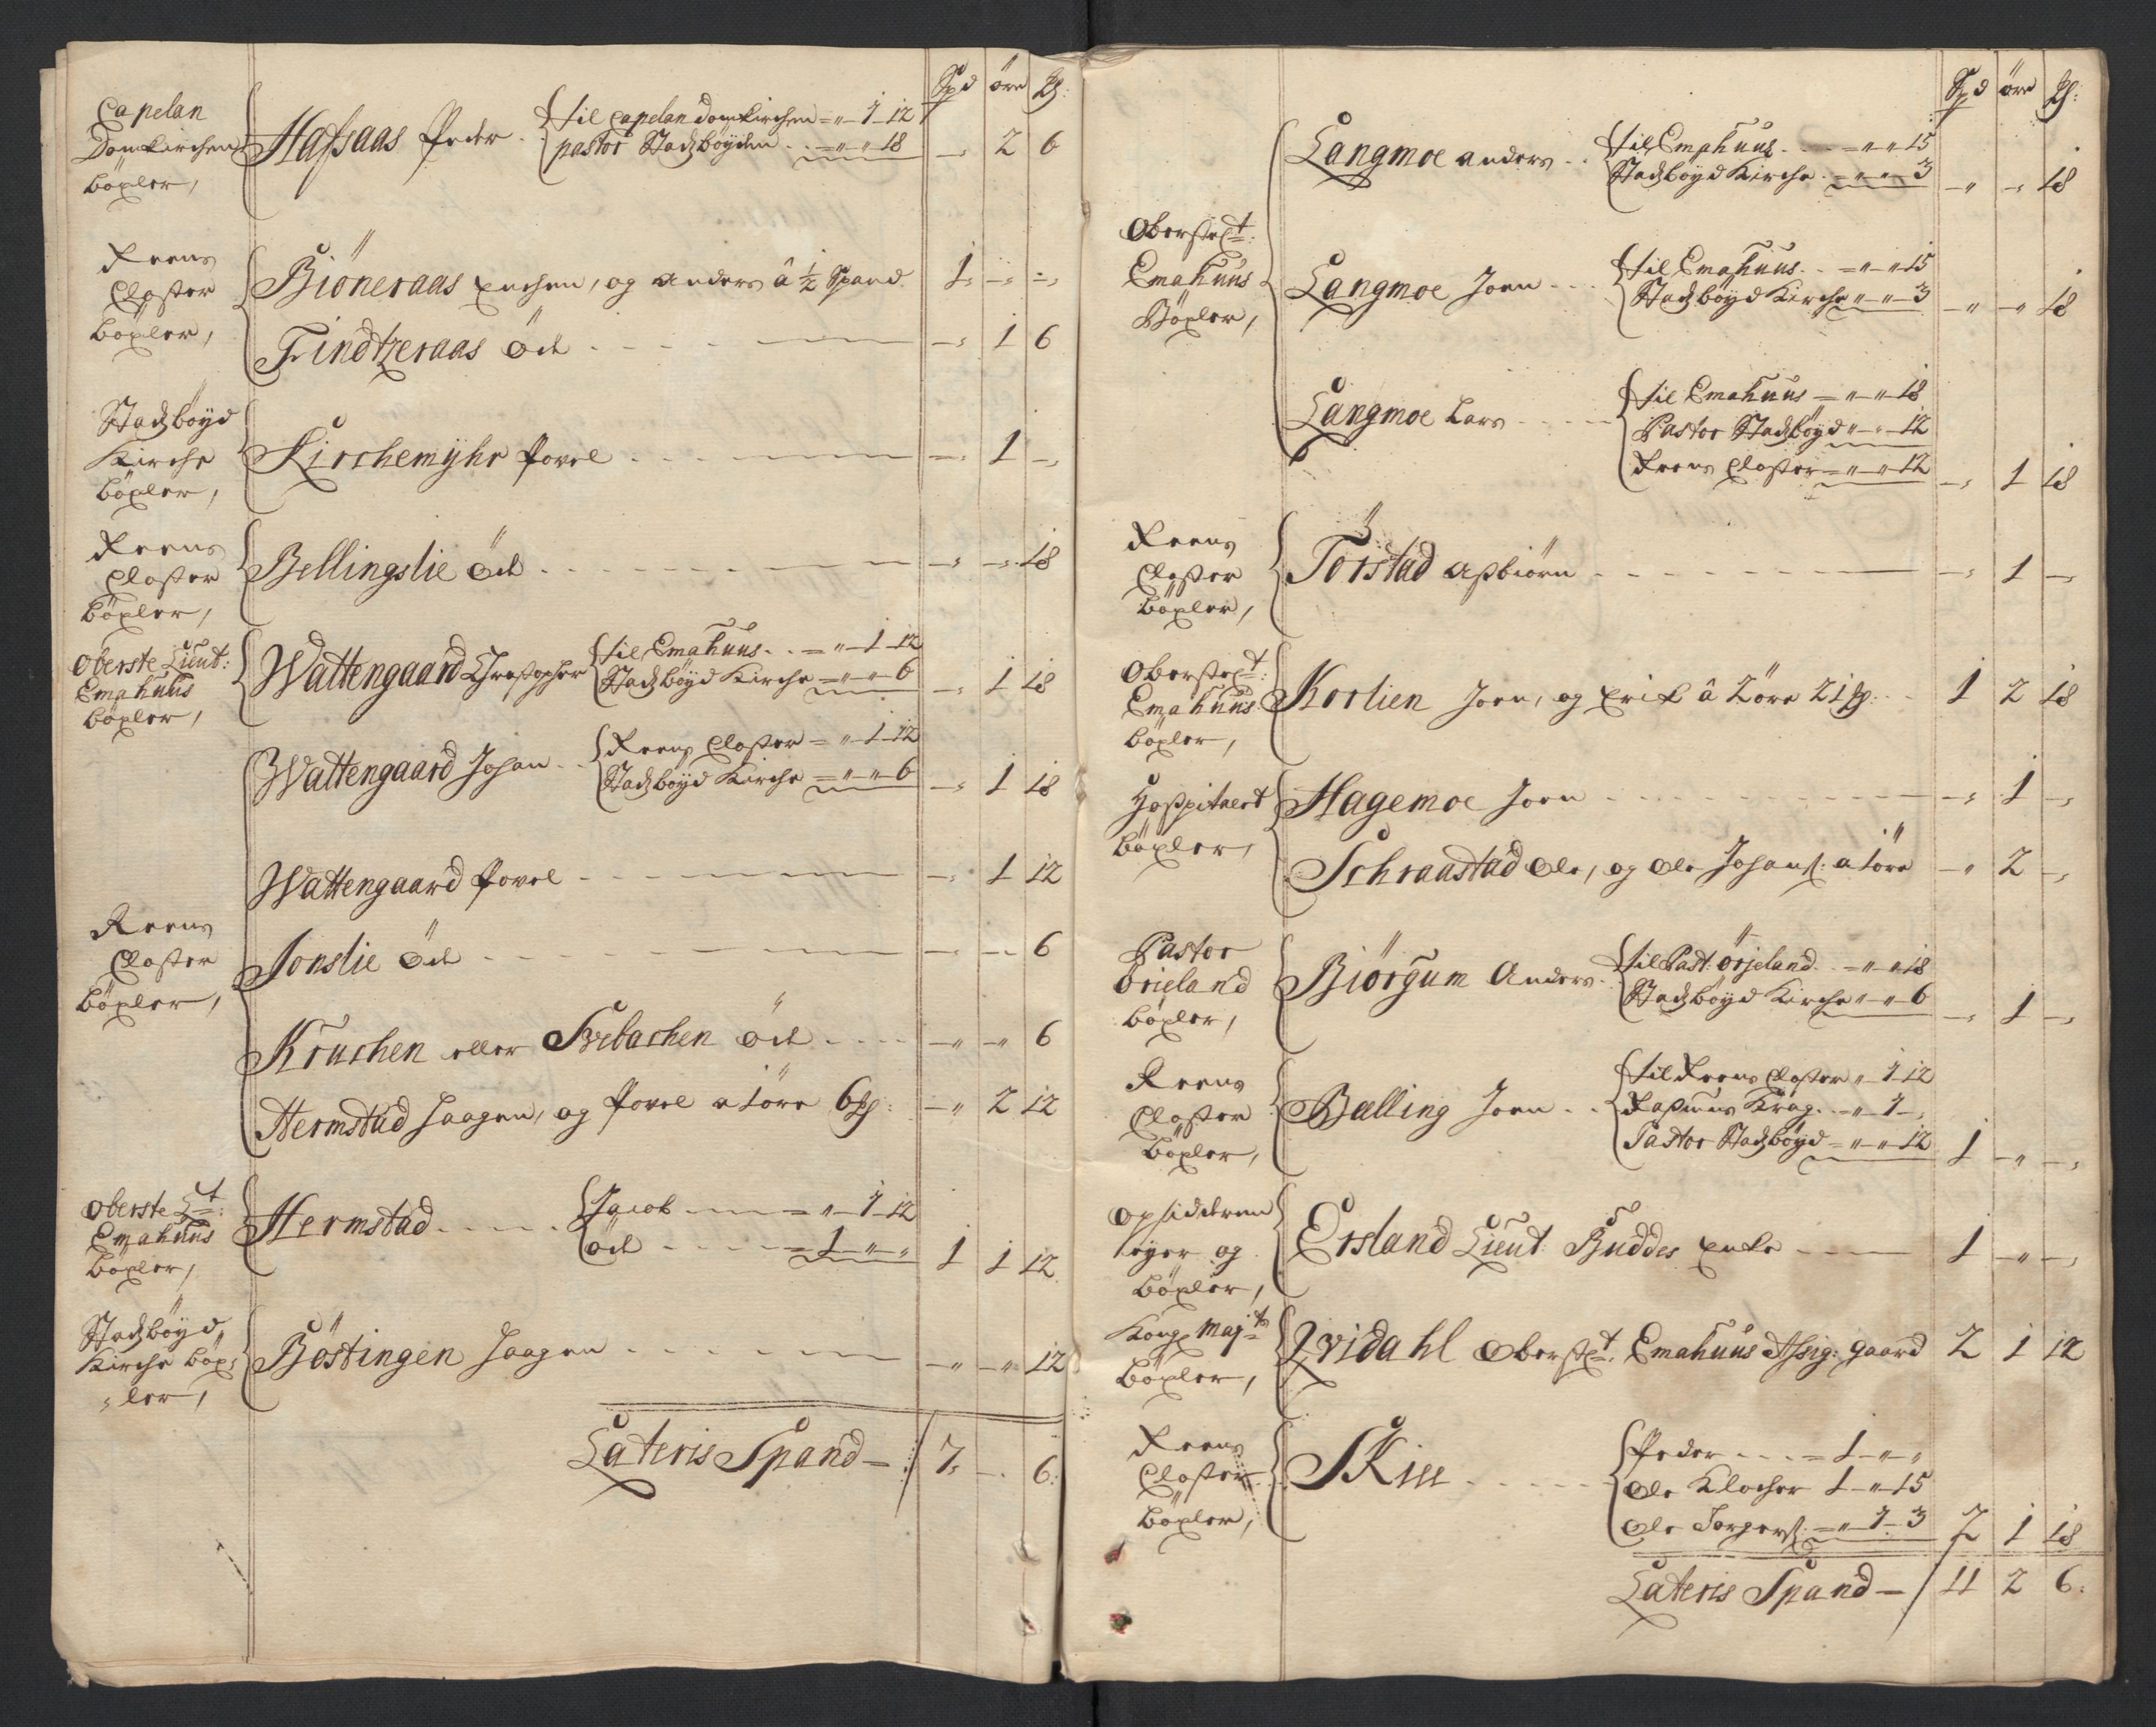 Spd öre Pg:
Capelan
Domkirchen
böxler,
Hafsaas Peder . til Capelan domkirchen = „ 1 12
pastor Stadzböyden . . = „ „ 18 – 2 6
Reens
Closter
böxler,
Biöneraas Enchen, og Anders â ½ Spand. 1 – –
Findtzeraas Öde . . . – 1 6
Stadzböyd
Kirche
böxler,
Kirchemÿhr Povel . . . – 1 –
Reens
Closter
böxler,
Bellingslie öde . . . – – 18
Oberste Lieut:
Emahuus
böxler,
Wattengaard Christopher til Emahuus . . = „ 1 12
Stadzböyd Kirche = „ „ 6 – 1 18
Wattengaard Johan . . Reens Closter = „ 1 12
Stadzböyd Kirche = „ „ 6 – 1 18
Wattengaard Povel – 1 12
Reens
Closter
böxler,
Jonslie Öde – – 6
Kruchen eller Svebachen öde . . . – – 6
Hermstad Haagen, og Povel a 1 öre 6 Pg: – 2 12
Oberste Lt:
Emahuus
böxler,
Hermstad . . . Jacob = „ 1 12
öde = 1 „ „ 1 1 12
Stadzböyd
Kirche böx=
=ler,
Böstingen Haagen . . . – – 12
Lateris Spand – 7 – 6:
Spd öre Pg:
Oberste Lt:
Emahuus
Böxler,
Langmoe Anders . . til Emahuus . . = „ „ 15
Stadzböyd Kirche . = „ „ 3 – – 18
Langmoe Joen . . . til Emahuus . . = „ „ 15
Stadzböyd Kirche „ „ 3 – – 18
Langmoe Lars . . . til Emahuus = „ „ 18
Pastor Stadzböyd „ „ 12
Reens Closter = „ „ 12 – 1 18
Reens
Closter
böxler,
Torstad Asbiörn . . . – 1 –
Oberste Lt:
Emahuus
böxler,
Korlien Joen, og Erik â 2 öre 21 Pg. . 1 2 18
Hospitaelt
böxler,
Hagemoe Joen . . . – 1 –
Schraastad Ole, og Ole Johans: a 1 öre – 2 –
Pastor
Örieland
böxler,
Biörgum Anders . til Past: örjeland . = „ „ 18
Stadzböyd Kirche „ „ 6 – 1 –
Reens
Closter
böxler,
Balling Joen . . til Reens Closter „ 1 12
Rasmus Krag . = „ 1 –
Pastor Stadzböyd = „ „ 12 1 – –
Opsidderen
eÿer og
böxler,
Ersland Lieut: Buddes Enke 1 – –
Kongl Majts
böxler,
Qvidahl Oberste Lt. Emahuus Assig: gaard 2 1 12
Reens
Closter
böxler,
Skiee . . . Peder . . . = 1 „ „
Ole Klocher 1 „ 15
Ole Torgers: = „ 1 3 2 1 18
Lateris Spand – 11 2 6: